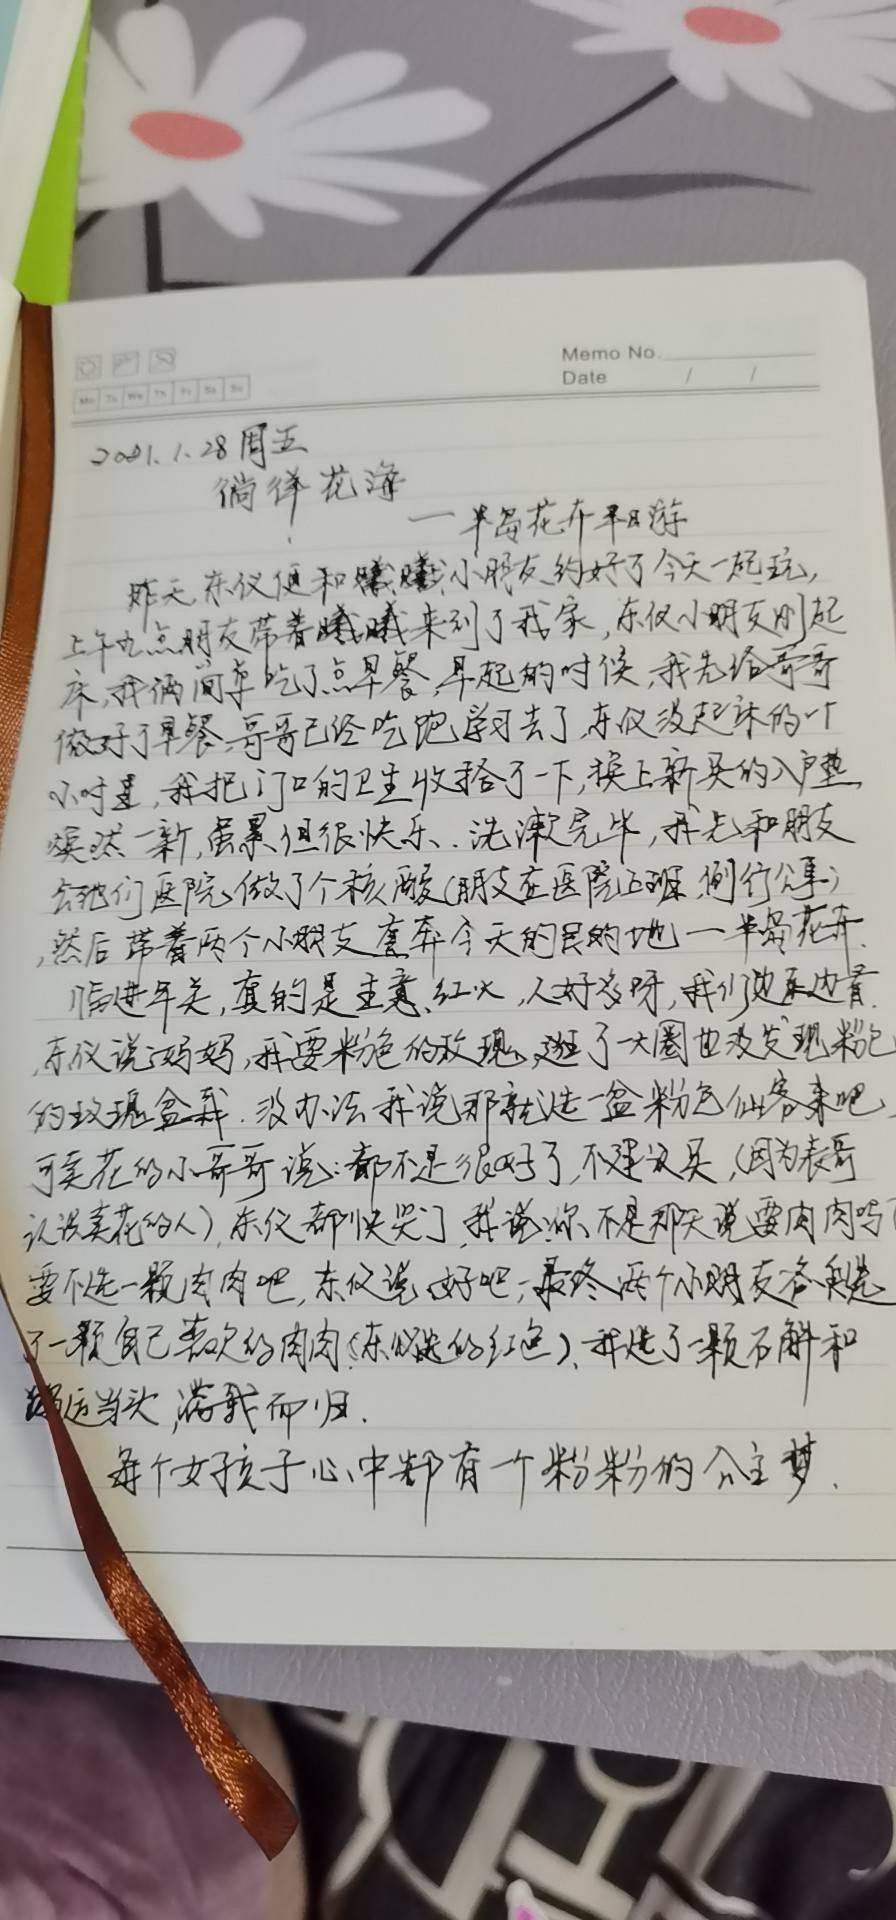 Memo No.
Date / /
Mo Tu We Th Fr Sa Su
2021.1.28周五
徜徉花海
一半岛花卉半日游
昨天东仪便和曦曦小朋友约好了今天一起玩,
上午九点朋友带着曦曦来到了我家,东仪小朋友刚起
床,我俩简单吃了点早餐,早起的时候,我先给哥哥
做好了早餐,哥哥已经吃饱学习去了,东仪没起床的一个
小时里,我把门口的卫生收拾了一下,换上新买的入户垫,
焕然一新,虽累但很快乐.洗漱完毕,我先和朋友
去他们医院做了个核酸(朋友在医院上班,例行公事)
,然后带着两个小朋友直奔今天的目的地一半岛花卉.
临进年关,真的是生意红火,人好多呀,我们边逛边看.
,东仪说:妈妈,我要粉色的玫瑰,逛了一大圈也没发现粉色
的玫瑰盆栽.没办法我说那就选一盆粉色仙客来吧,
可卖花的小哥哥说:都不是很好了,不建议买,(因为表哥
认识卖花的人),东仪都快哭了,我说:你不是那天说要肉肉吗
要不选一颗肉肉吧,东仪说:好吧,最终两个小朋友各自选
了一颗自己喜欢的肉肉(东仪选的红色),我选了一颗石斛和
鸿运当头,满载而归.
每个女孩子心中都有一个粉粉的公主梦.